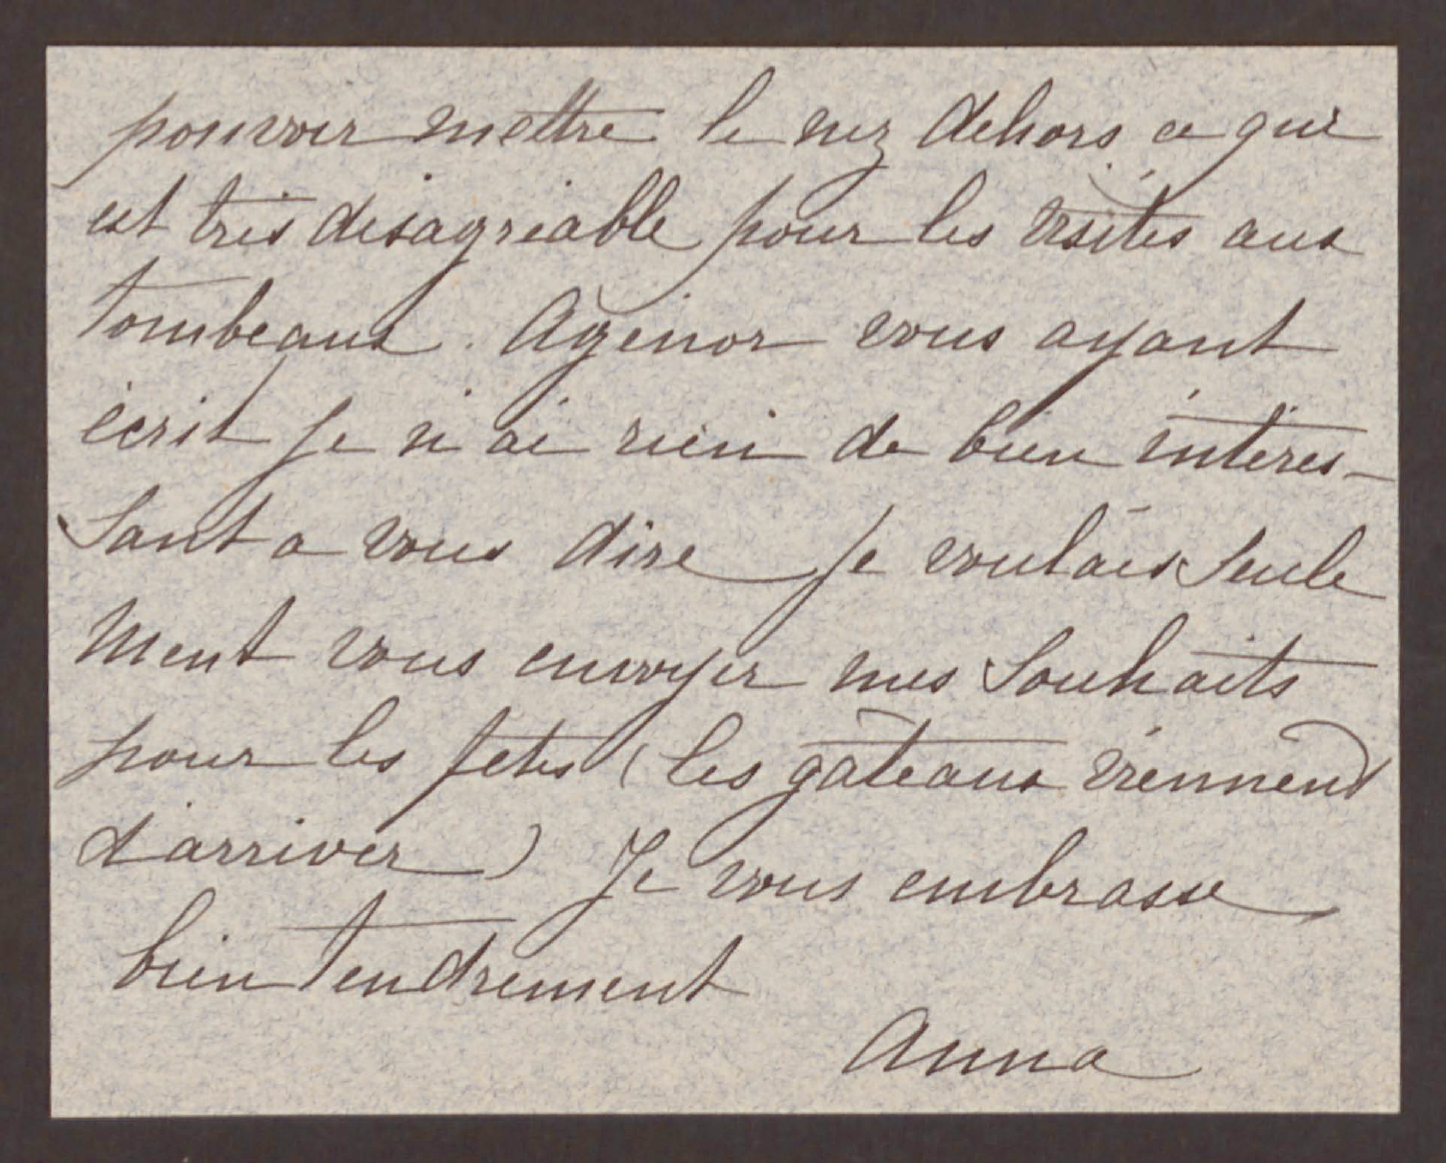 pouvoir mettre le nez dehors ce qui
est très désagréable pour les visites aux
tombeaux. Agénor vous ayant
écrit je n'ai rien de bien intéres-
sant a vous dire je voulais seule
ment vous envoyer mes souhaits
pour les fetes (les gâteaux viennent
d'arriver) Je vous embrasse
bien tendrement
Anna